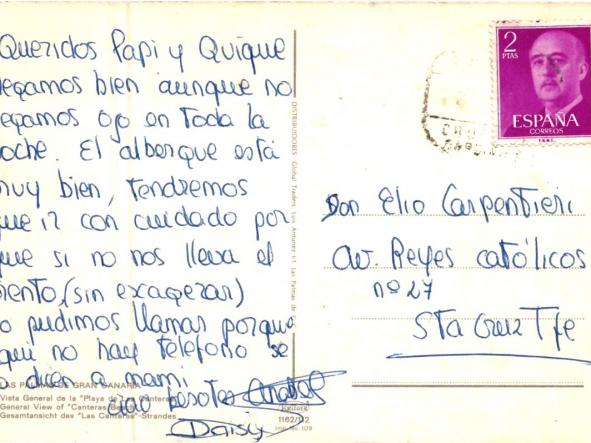 Queridos Papi y Quique
legamos bien aunque no
egamos ojo en toda la
oche. El albergue está
muy bien, tendremos
que ir con cuidado por
que si no nos lleva el
iento, (sin exagerar)
o pudimos llamar porque
qui no hay teléfono se
o dicen a mami
besotes Anabel
Daisy
LAS PALMAS DE GRAN CANARIA
Vista General de la "Playa de Las Canteras"
General View of "Canteras Beach"
Gesamtansicht des "Las Canteras"-Strandes
1162/112
Imp. No. 109
DISTRIBUIDORES Global Traders, Luis Antunez 61 Las Palmas de G. C.
2
PTAS
ESPAÑA
CORREOS
Don Elio Carpentieri
Av. Reyes católicos
nº 27
Sta Cruz Tfe